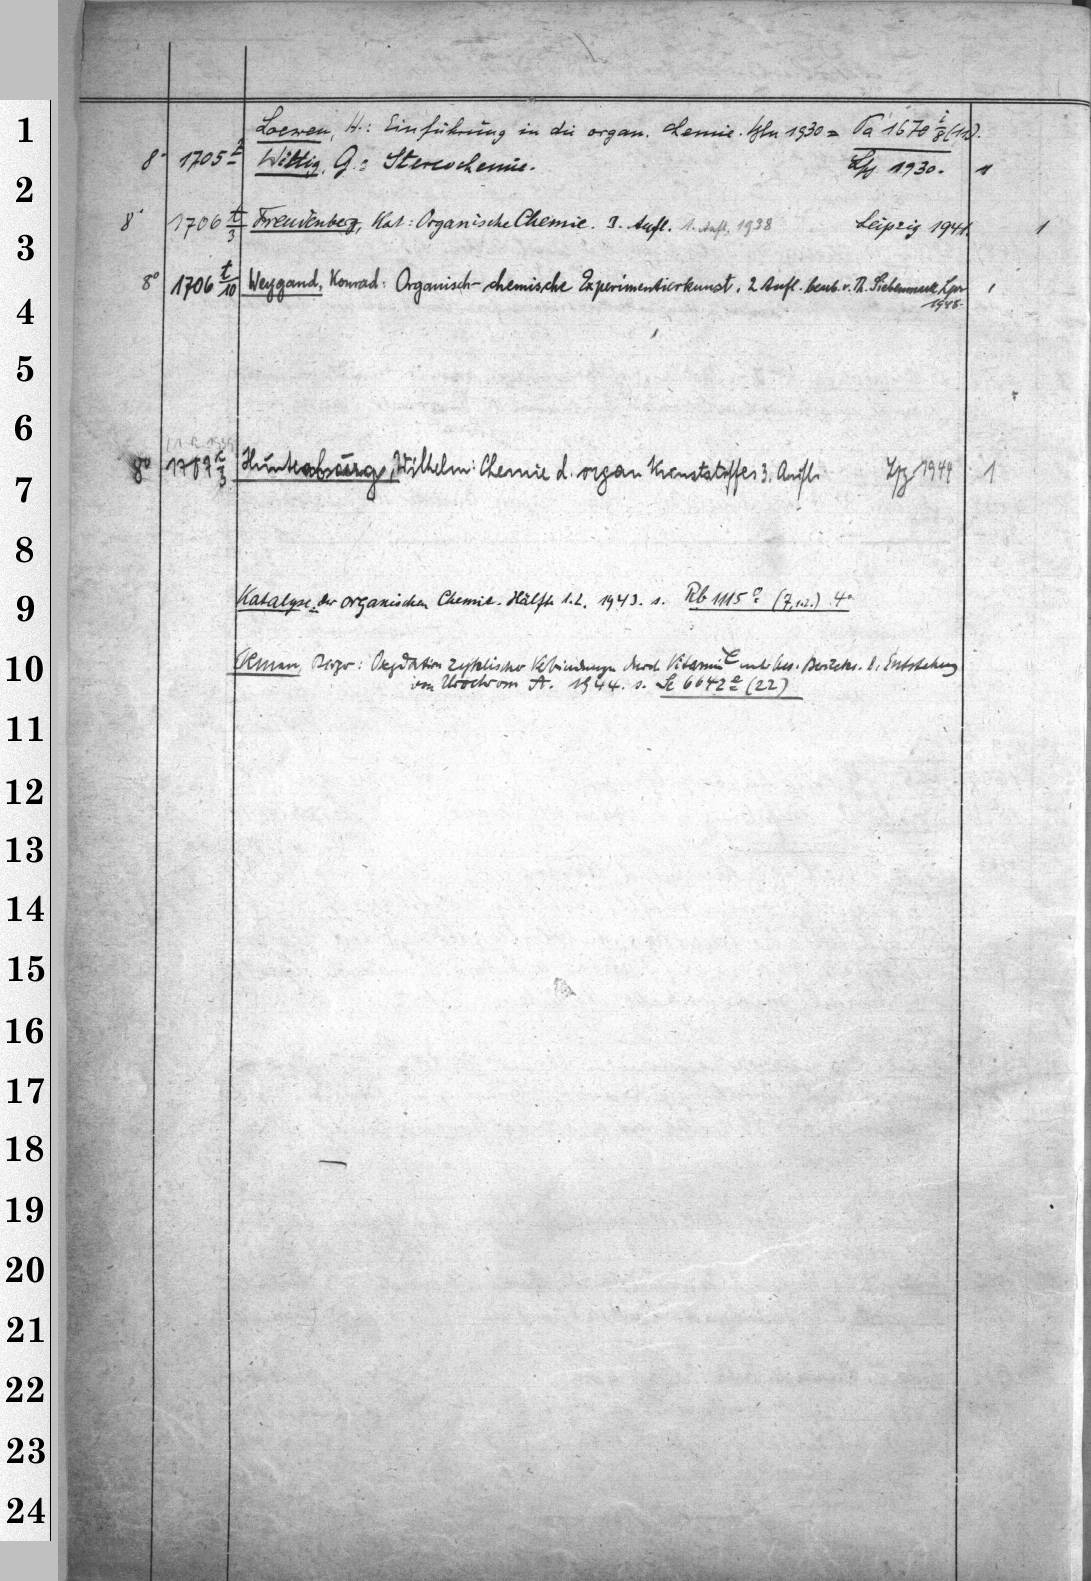 1
Loewen, H.: Einführung in die organ. Chemie. Bln 1930 = Pa 1670 i/8 (12).
8° 1705 Wittig, G.: Stereochemie. Lpz 1930. 1
2
8° 1706 t/3 Freudenberg, Kat: Organische Chemie. 3. Aufl. 1. Aufl. 1938 Leipzig 1941. 1
3
8° 1706 t/10 Weygand, Konrad: Organisch-chemische Experimentierkunst. 2 Aufl. bearb. v. Th. Siebenmark Lpz 1
1948.
4
5
6
8° 1707 t/3 Wilhelm: Chemie d. organ 3. Aufl. Lpz 1949 1
7
8
Katalyse der organischen Chemie. Hälfte 1.2. 1943. s. Rb 1115 (7,1.2.) 4°
9
10
Vitamin C Entstehung
von Urochrom A. 1944. s. 6642 (22)
11
12
13
14
15
16
17
18
19
20
21
22
23
24